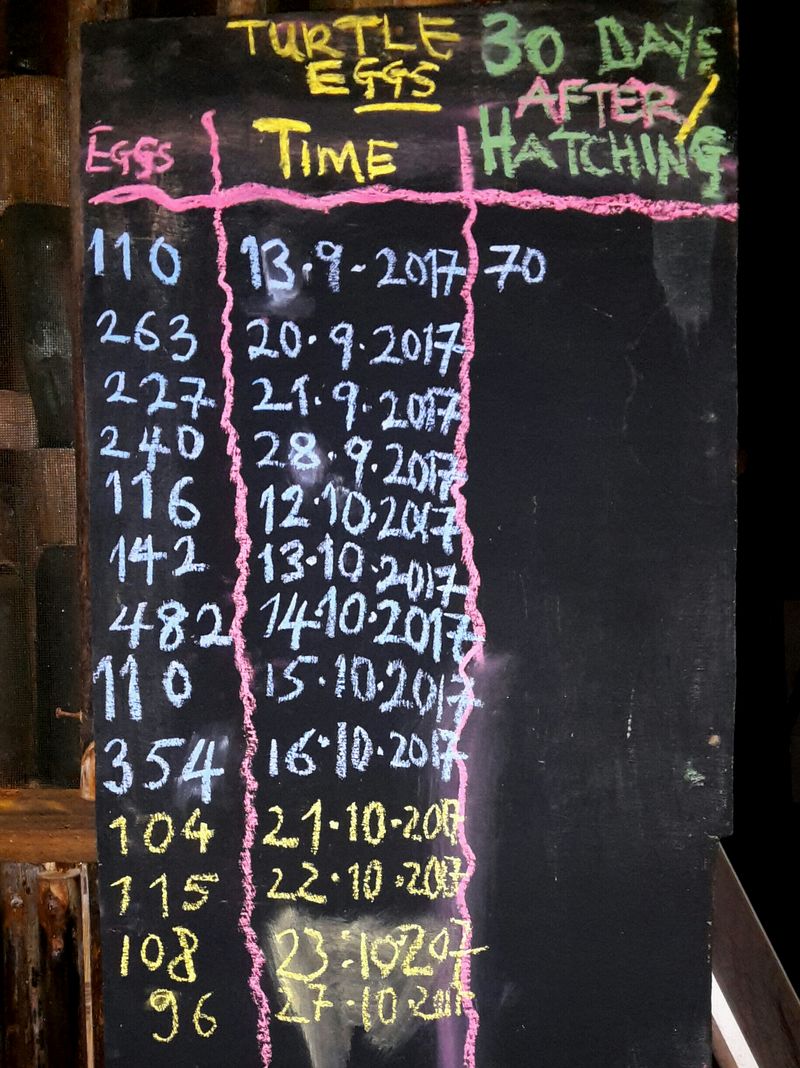 TURTLE EGGS
30 DAYS AFTER/ HATCHING
EGGS TIME
110 13.9-2017 70
263 20.9.2017
227 21.9.2017
240 28.9.2017
116 12.10.2017
142 13.10.2017
482 14.10.2017
110 15.10.2017
354 16.10.2017
104 21.10.2017
115 22.10.2017
108 23.10.207
96 27.10.2017